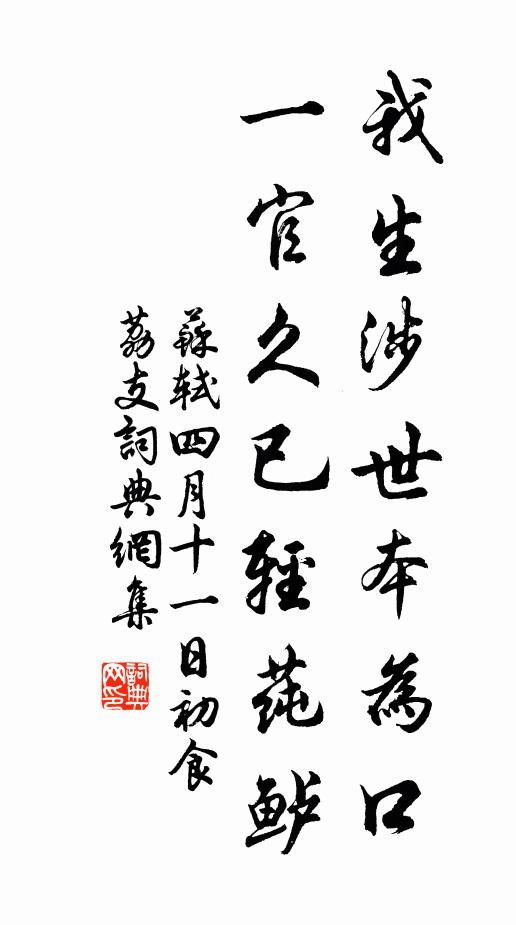 我生涉世本為口
一官久已輕蓴鲈
蘇軾四月十一日初食
荔支詞典網集
詞典
网印